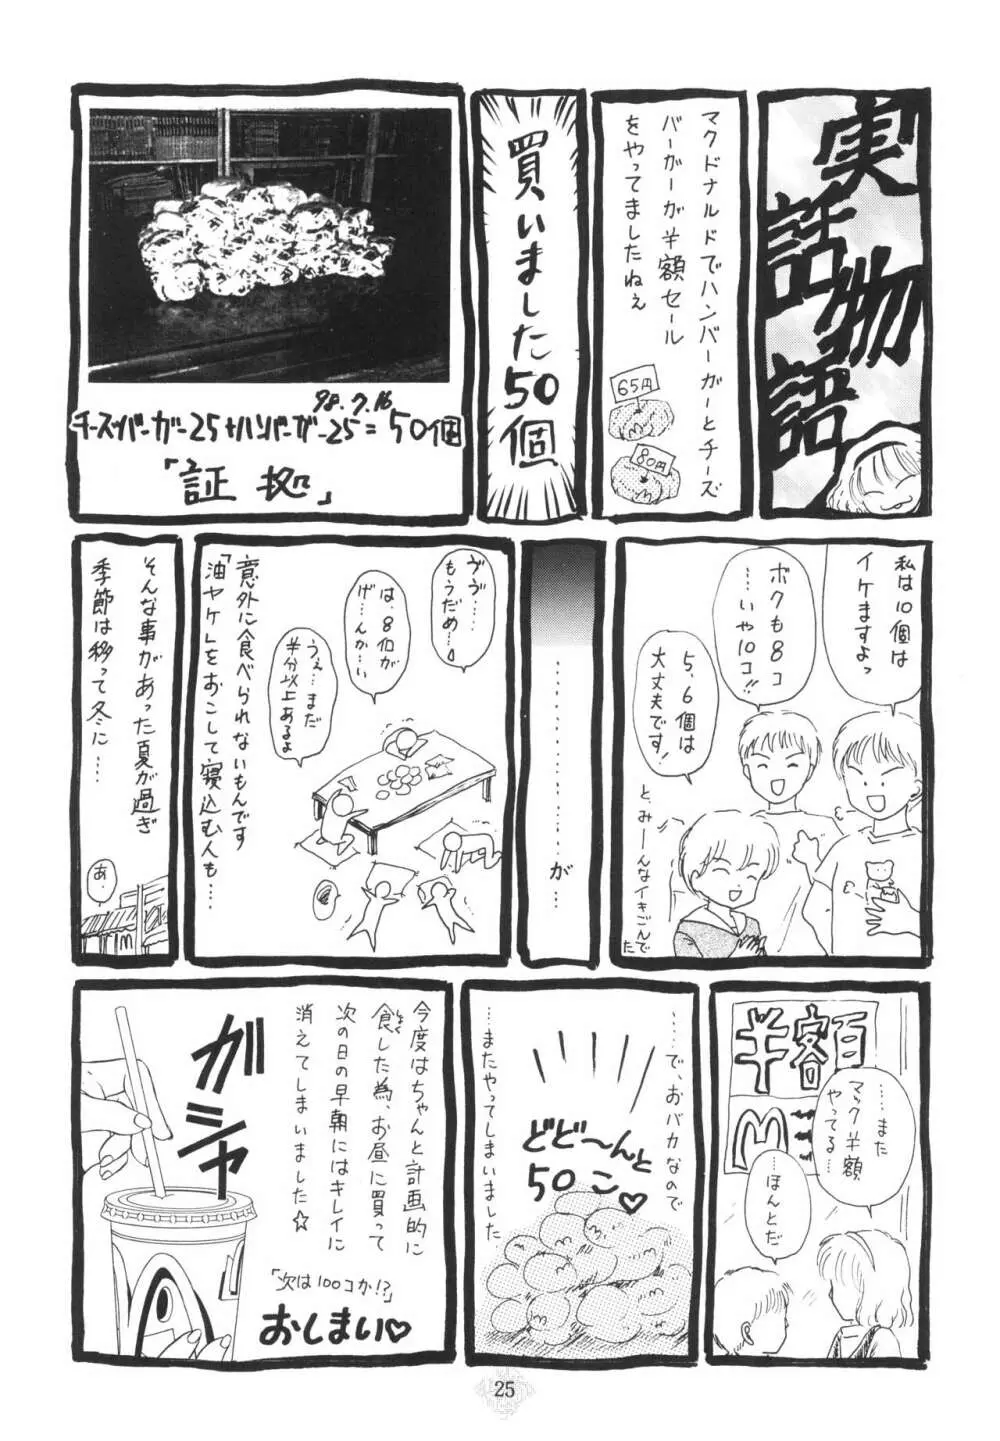 実話物語
マクドナルドでハンバーガーとチーズ
バーガーが半額セール
をやってましたねぇ
65円
80円
買いました50個
98.7.16
チーズバーガー25+ハンバーガー25=50個
「証拠」
私は10個は
イケますよっ
ボクも8コ
…いや10コ!!
5、6個は
大丈夫です!
と、みーんなイキごんで
た
…………が…
ヴヴ…
もうだめ…
は、8個が
げ…んか…い
うぇ…まだ
半分以上あるよ
意外に食べられないもんです
「油ヤケ」をおこして寝込む人も…
そんな事があった夏が過ぎ
季節は移って冬に…
あ、
半額
M
……また
マック半額
やってる…
…ほんとだ
……で、おバカなので
…またやってしまいました
どど〜んと
50こ♡
今度はちゃんと計画的に
食した為、お昼に買って
しょく
次の日の早朝にはキレイに
消えてしまいました☆
ガシャ
「次は100コか!?」
おしまい♡
25